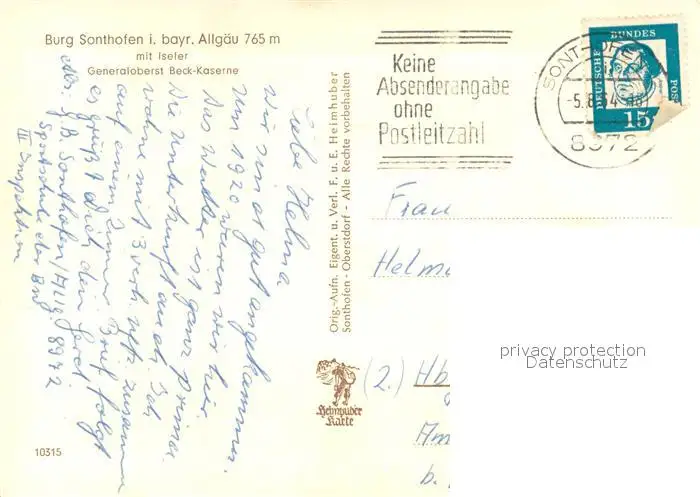 Burg Sonthofen i. bayr. Allgäu 765 m
mit Iseler
Generaloberst Beck-Kaserne
Liebe Helma
wir sind gut angekommen.
Um 1920 waren wir hier
Das Wetter ist ganz prima.
Die Unterkunft auch. Ich
wohn mit 3 verh. Uffz zusammen
auf einem Zimmer Brief folgt
es grüßt Dich dein Gerd
Abs. J.B. Sonthofen/Allg. 8972
Sportschule der Bw.
III Inspektion
10315
Orig.-Aufn. Eigent. u. Verl. F. u. E. Heimhuber
Sonthofen - Oberstdorf - Alle Rechte vorbehalten
Heimhuber
Karte
Keine
Absenderangabe
ohne
Postleitzahl
SONTHOFEN
8972
DEUTSCHE BUNDESPOST
15
Frau
Helm
(2.) Hb
Am
b.
privacy protection
Datenschutz